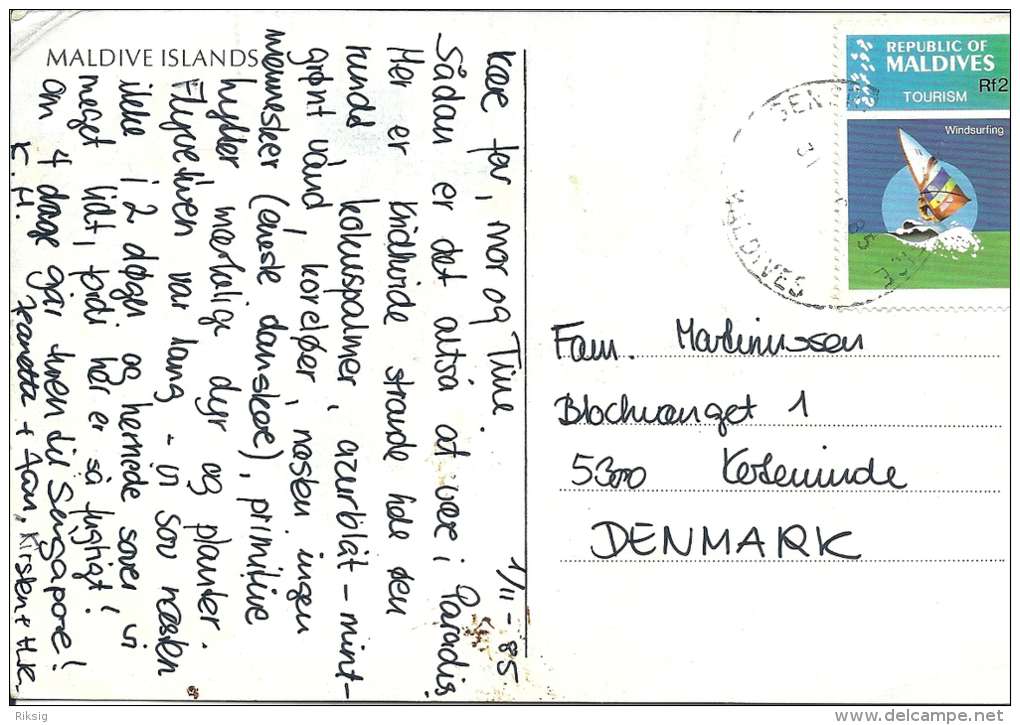 MALDIVE ISLANDS
1/11 - 85.
Kære far, mor og Tine.
Sådan er det altså at være i Paradis
Her er kridhvide strande hele øen
rundt, kokuspalmer, azurblåt - mint-
grønt vand, koreløer, næsten ingen
mennesker (eneste danskere), primitive
hytter mærkelige dyr og planter.
Flyveturen var lang - vi sov næsten
ikke i 2 døgn og hernede sover vi
meget lidt, fordi her er så fugtigt!
om 4 dage går turen til Singapore!
K. H. Jeanette + Kirsten + H.K.
REPUBLIC OF
MALDIVES
Rf2
TOURISM
Windsurfing
MALDIVES
85
Fam. Martinussen
Blochvænget 1
5300 Kerteminde
DENMARK
Riksig
www.delcampe.net